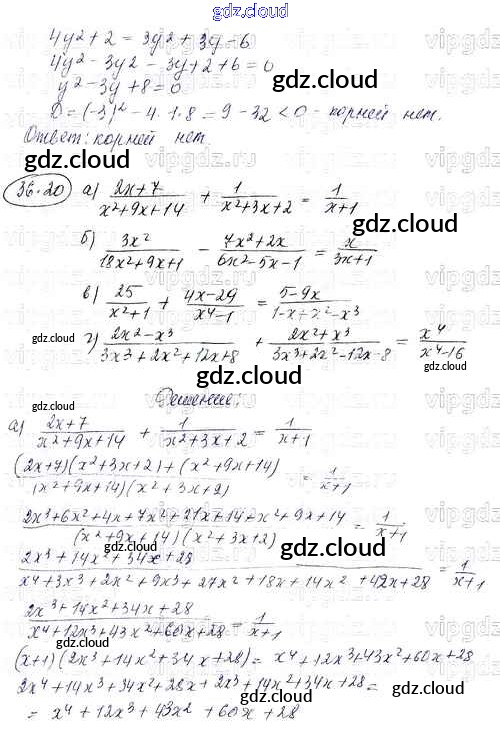 gdz.cloud
4y² + 2 = 3y² + 3y - 6
4y² - 3y² - 3y + 2 + 6 = 0
y² - 3y + 8 = 0
D = (-3)² - 4·1·8 = 9 - 32 < 0 - корней нет.
Ответ: корней нет.
36.20 а) (2x+7)/(x²+9x+14) + 1/(x²+3x+2) = 1/(x+1)
б) 3x²/(18x²+9x+1) - (7x²+2x)/(6x²-5x-1) = x/(3x+1)
в) 25/(x²+1) + (4x-29)/(x⁴-1) = (5-9x)/(1-x+x²-x³)
г) (2x²-x³)/(3x³+2x²+12x+8) + (2x²+x³)/(3x³+2x²-12x-8) = x⁴/(x⁴-16)
Решение:
а) (2x+7)/(x²+9x+14) + 1/(x²+3x+2) = 1/(x+1)
((2x+7)(x²+3x+2)+(x²+9x+14))/((x²+9x+14)(x²+3x+2)) = 1/(x+1)
(2x³+6x²+4x+7x²+21x+14+x²+9x+14)/((x²+9x+14)(x²+3x+2)) = 1/(x+1)
(2x³+14x²+34x+28)/(x⁴+3x³+2x²+9x³+27x²+18x+14x²+42x+28) = 1/(x+1)
(2x³+14x²+34x+28)/(x⁴+12x³+43x²+60x+28) = 1/(x+1)
(x+1)(2x³+14x²+34x+28) = x⁴+12x³+43x²+60x+28
2x⁴+14x³+34x²+28x+2x³+14x²+34x+28 =
= x⁴+12x³+43x²+60x+28